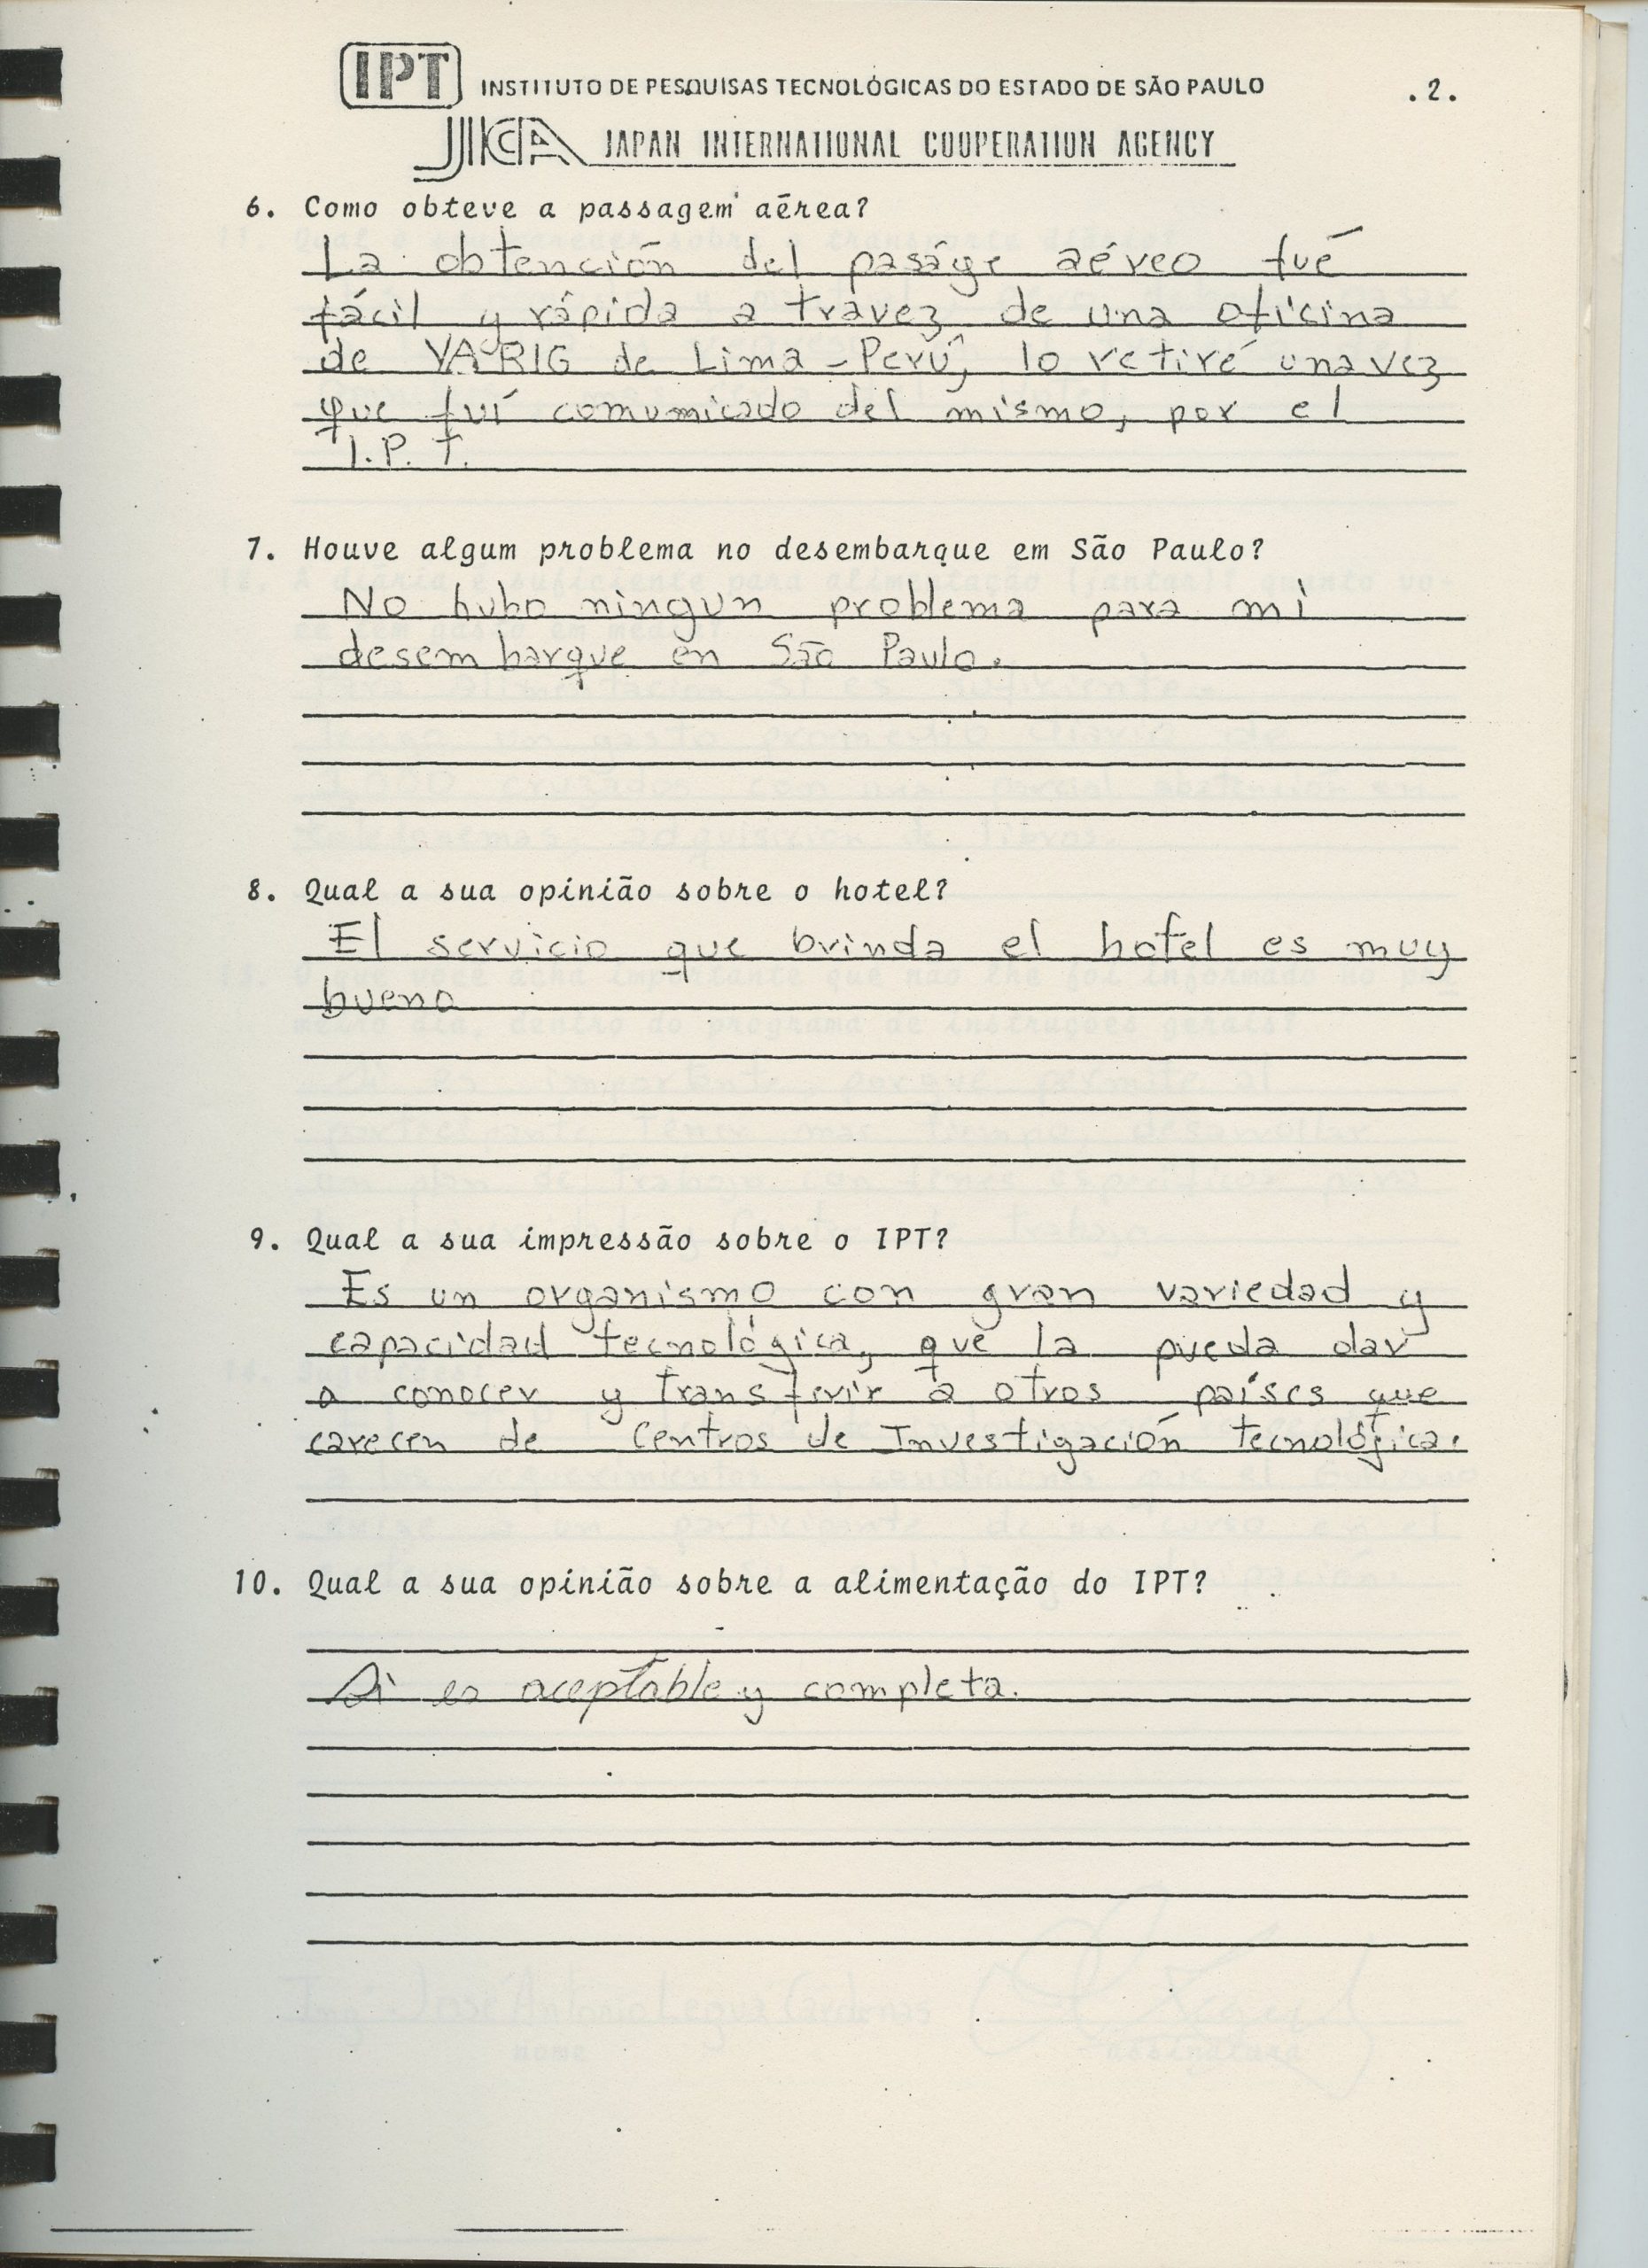 IPT INSTITUTO DE PESQUISAS TECNOLÓGICAS DO ESTADO DE SÃO PAULO .2.
JICA JAPAN INTERNATIONAL COOPERATION AGENCY
6. Como obteve a passagem aérea?
La obtención del paságe aéreo fué
fácil y rápida a travez de una oficina
de VARIG de Lima-Perú, lo retiré una vez
que fuí comumicado del mismo, por el
I.P.T.
7. Houve algum problema no desembarque em São Paulo?
No hubo ningun problema para mi
desembarque en São Paulo.
8. Qual a sua opinião sobre o hotel?
El servicio que brinda el hotel es muy
bueno
9. Qual a sua impressão sobre o IPT?
Es un organismo con gran variedad y
capacidad tecnológica, que la pueda dar
a conocer y transferir a otros países que
carecen de Centros de Investigación tecnológica.
10. Qual a sua opinião sobre a alimentação do IPT?
Si es aceptable y completa.